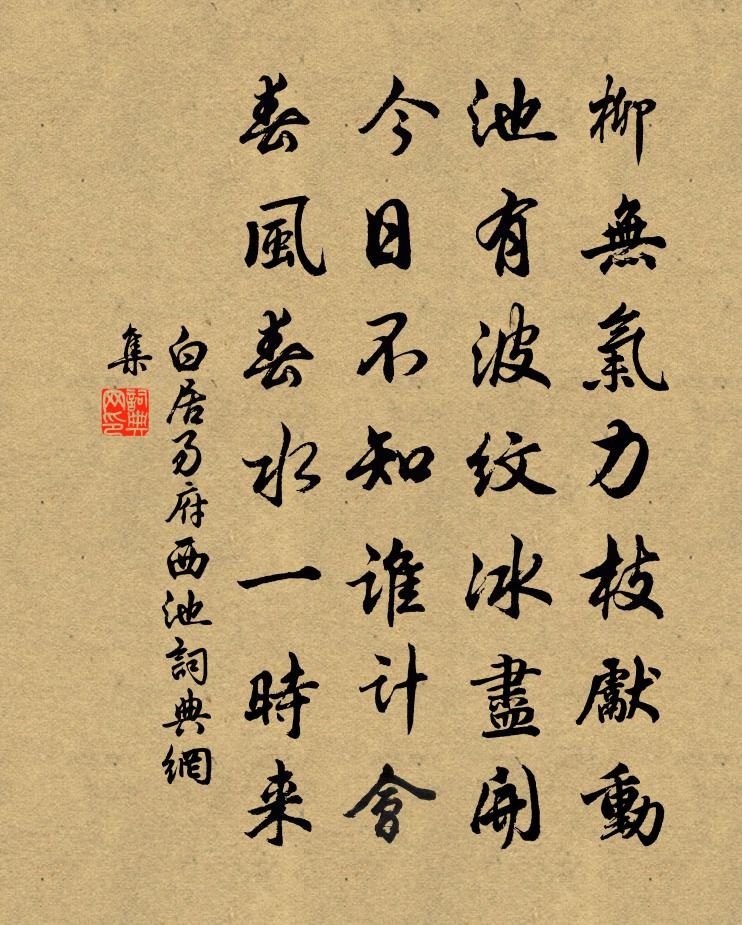 柳無氣力枝獻動
池有波紋冰盡開
今日不知誰計會
春風春水一時来
白居易府西池詞典網
集
詞典
网印